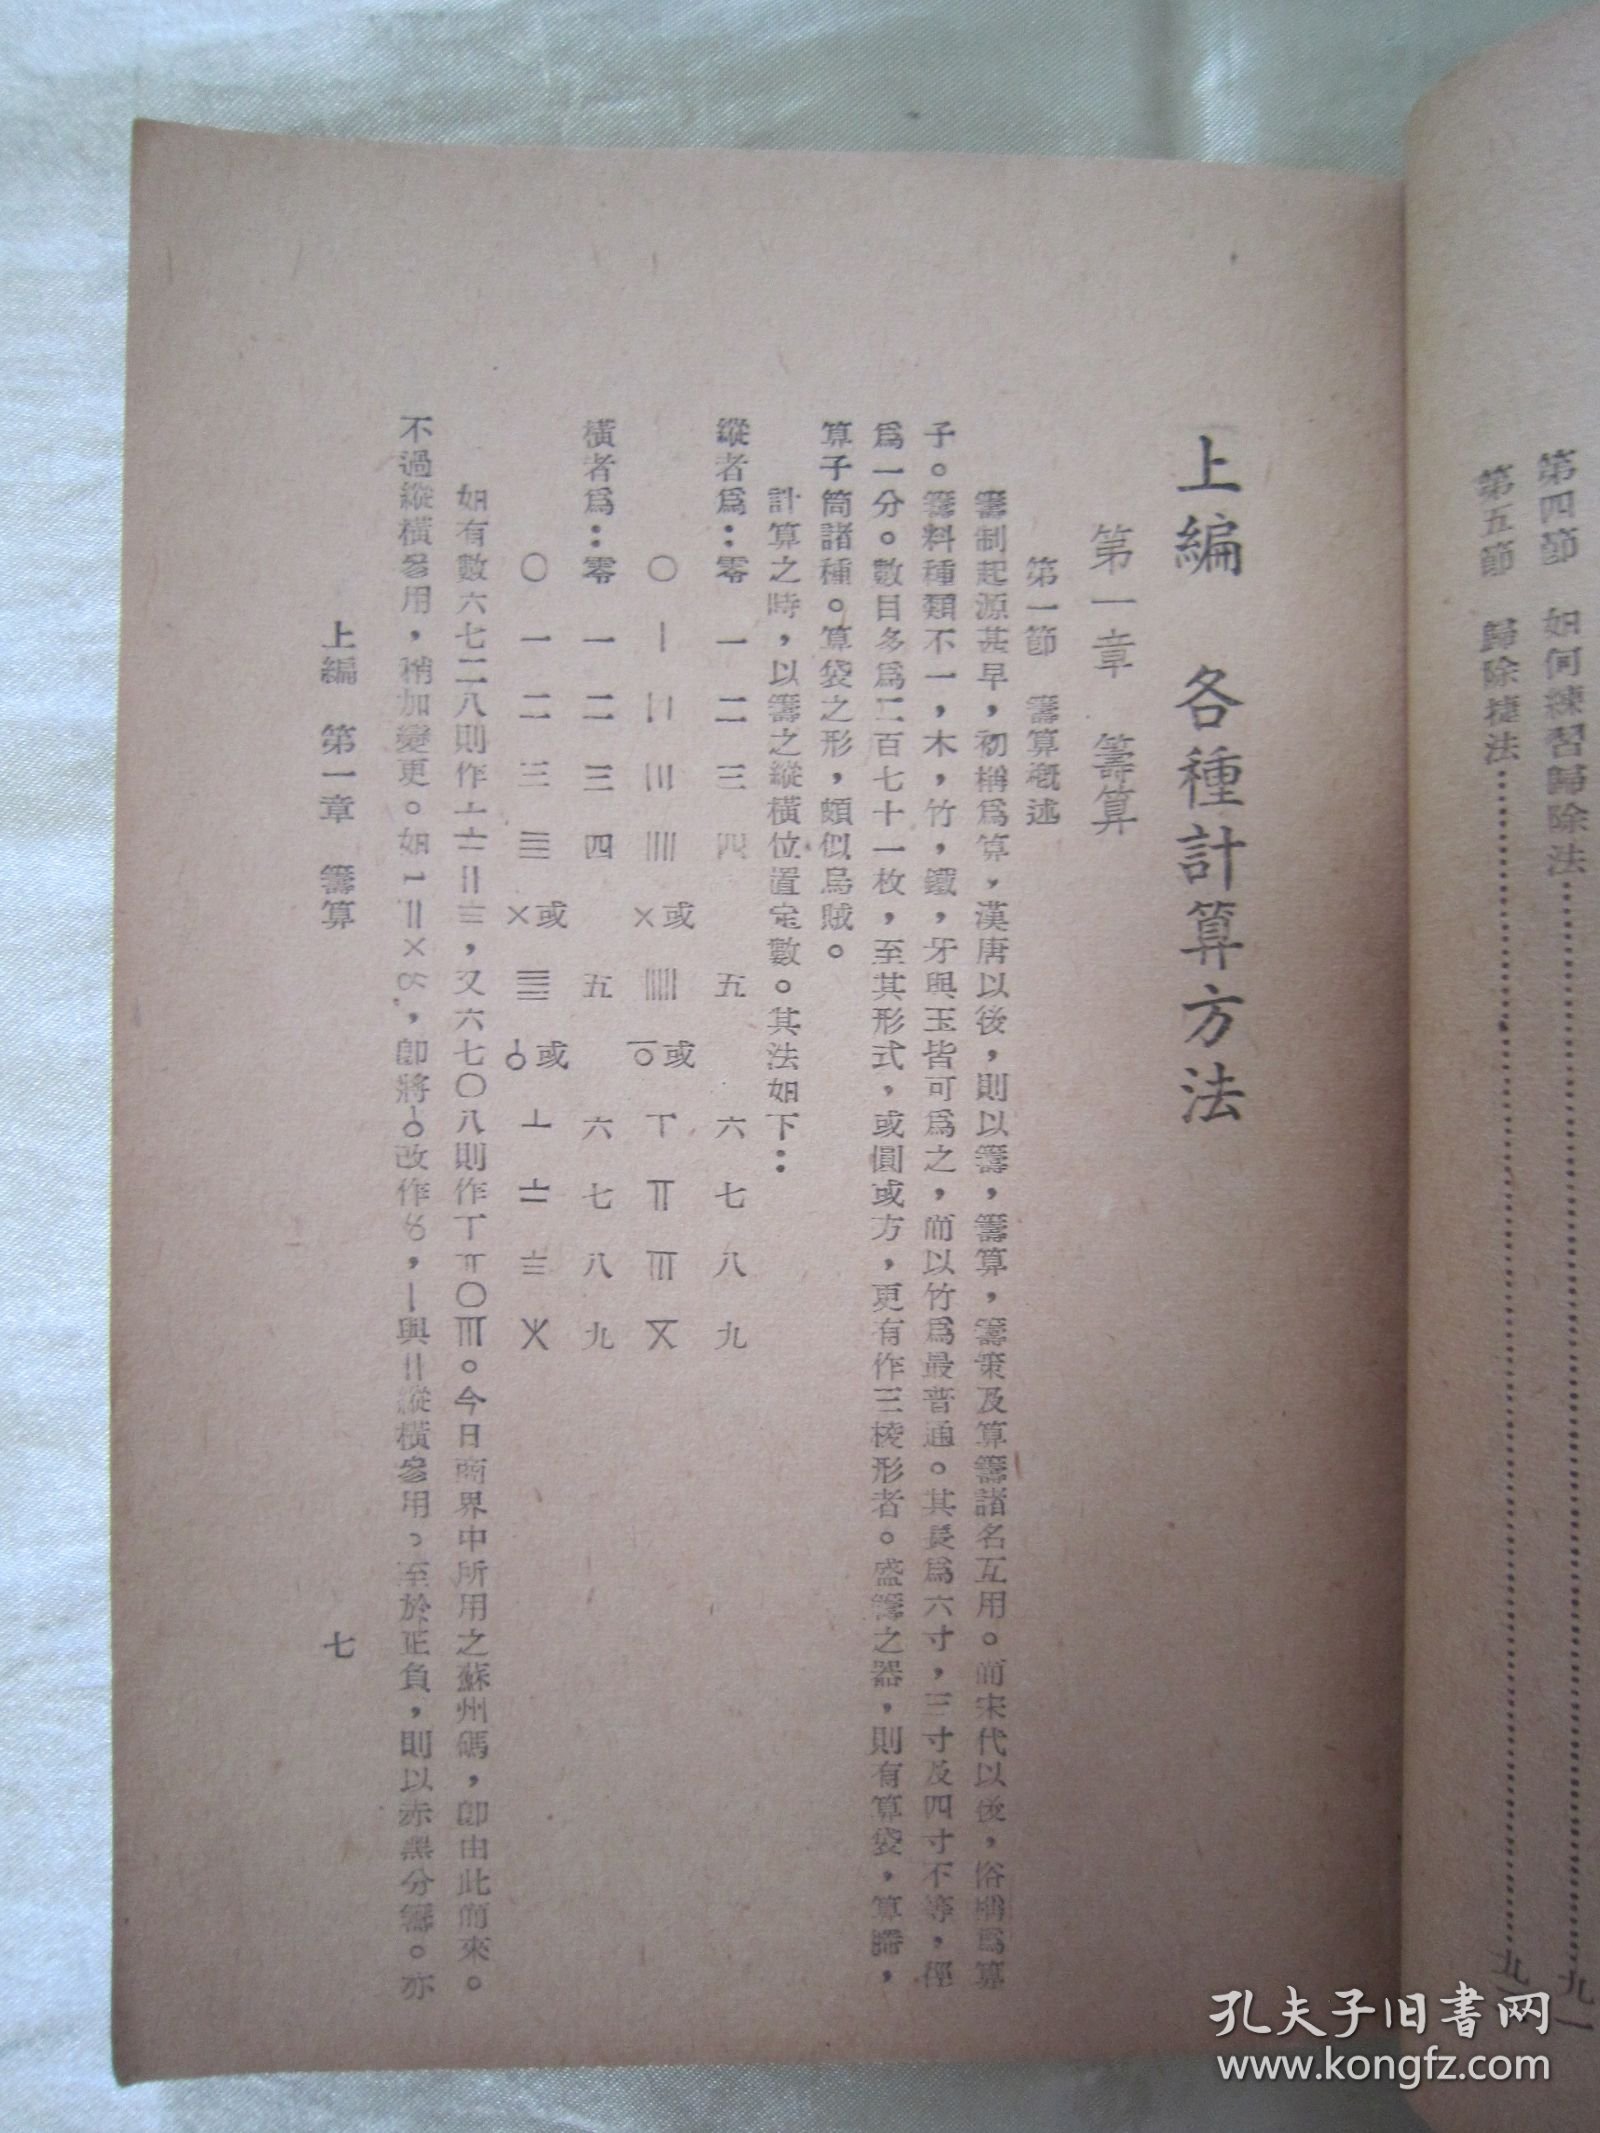 第四節　如何練習歸除法……………………九一
第五節　歸除捷法……………………九
上編　各種計算方法
第一章　籌算
第一節　籌算槪述
籌制起源甚早，初稱爲算，漢唐以後，則以籌，籌算，籌策及算籌諸名互用。而宋代以後，俗稱爲算
子。籌料種類不一，木，竹，鐵，牙與玉皆可爲之，而以竹爲最普通。其長爲六寸，三寸及四寸不等，徑
爲一分。數目多爲二百七十一枚，至其形式，或圓或方，更有作三棱形者。盛籌之器，則有算袋，算
算子筒諸種。算袋之形，頗似烏賊。
計算之時，以籌之縱橫位置定數。其法如下：
縱者爲：零　一　二　三　四　五　六　七　八　九
〇　〡　〢　〣　𝍬　×或𝍭　或丅　𝍯　𝍰　〤
橫者爲：零　一　二　三　四　五　六　七　八　九
〇　一　二　三　亖　×或𝍤　或⊥　〧　〨　〩
如有數六七二八則作〦〧〢〨，又六七〇八則作丅𝍮〇𝍯。今日商界中所用之蘇州碼，卽由此而來。
不過縱橫參用，稍加變更。如〡〢×〥，卽將改作〥，〡與〢縱橫參用。至於正負，則以赤黑分籌。亦
上編　第一章　籌算　七
孔夫子旧书网
www.kongfz.com